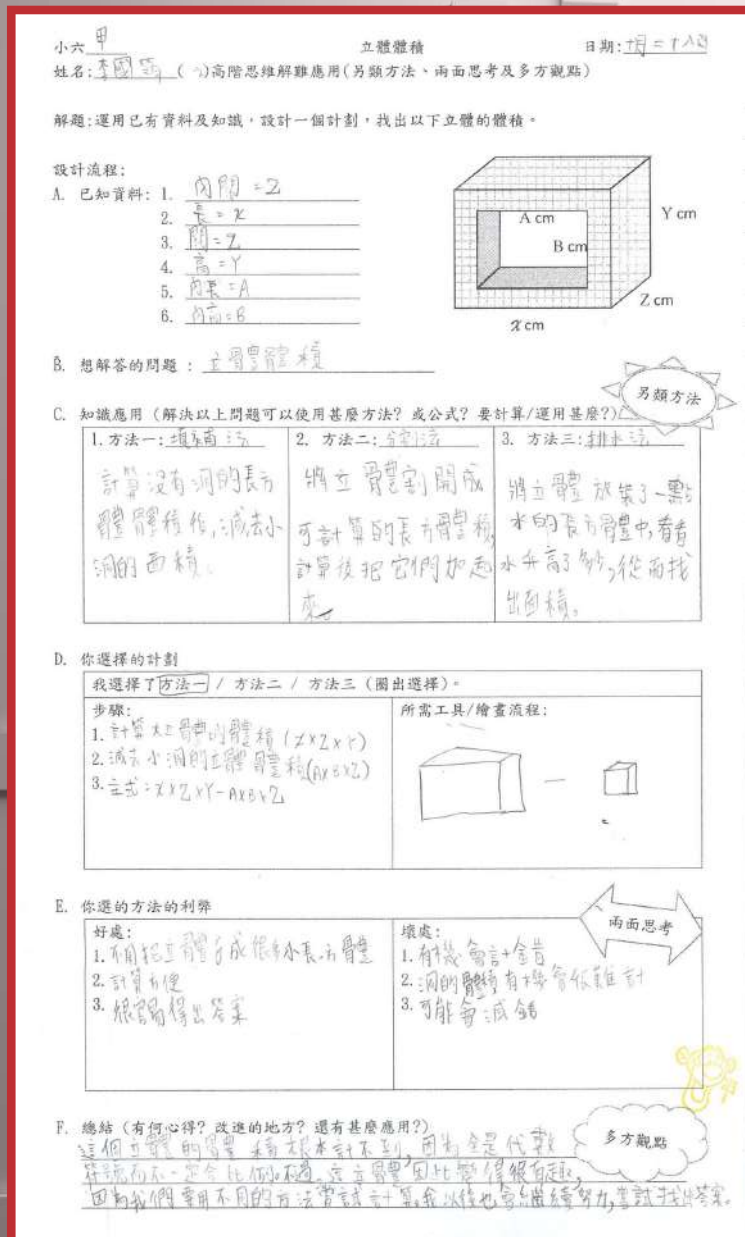 小六 甲 立體體積 日期:十月二十八日
姓名:李國 ( )高階思維解難應用(另類方法、兩面思考及多方觀點)
解題:運用已有資料及知識,設計一個計劃,找出以下立體的體積。
設計流程:
A. 已知資料: 1. 內闊=Z
2. 長=x
3. 闊=Z
4. 高=Y
5. 內長=A
6. 內高=B
A cm
B cm
Y cm
Z cm
x cm
B. 想解答的問題 : 立體體積
另類方法
C. 知識應用 (解決以上問題可以使用甚麼方法? 或公式? 要計算/運用甚麼?)
1. 方法一:填補法
計算沒有洞的長方
體體積後,減去小
洞的面積。
2. 方法二:分割法
將立體割開成
可計算的長方體積,
計算後把它們加起
來。
3. 方法三:排水法
將立體放裝了一點
水的長方體中,看看
水升高了多少,從而找
出面積。
D. 你選擇的計劃
我選擇了方法一 / 方法二 / 方法三 (圈出選擇)。
步驟:
1. 計算大立體的體積 (x×Z×Y)
2. 減去小洞的立體體積(A×B×Z)
3. 立式:x×Z×Y-A×B×Z
所需工具/繪畫流程:
E. 你選的方法的利弊
兩面思考
好處:
1. 不用把立體分成很多小長方體
2. 計算方便
3. 很容易得出答案
壞處:
1. 有機會計錯
2. 洞的體積有機會很難計
3. 可能會減錯
F. 總結 (有何心得? 改進的地方? 還有甚麼應用?)
多方觀點
這個立體的體積根本計不到,因為全是代數
符號而不一定合比例。不過,這立體因此變得很有趣,
因為我們要用不同的方法嘗試計算。我以後也會繼續努力,嘗試找出答案。